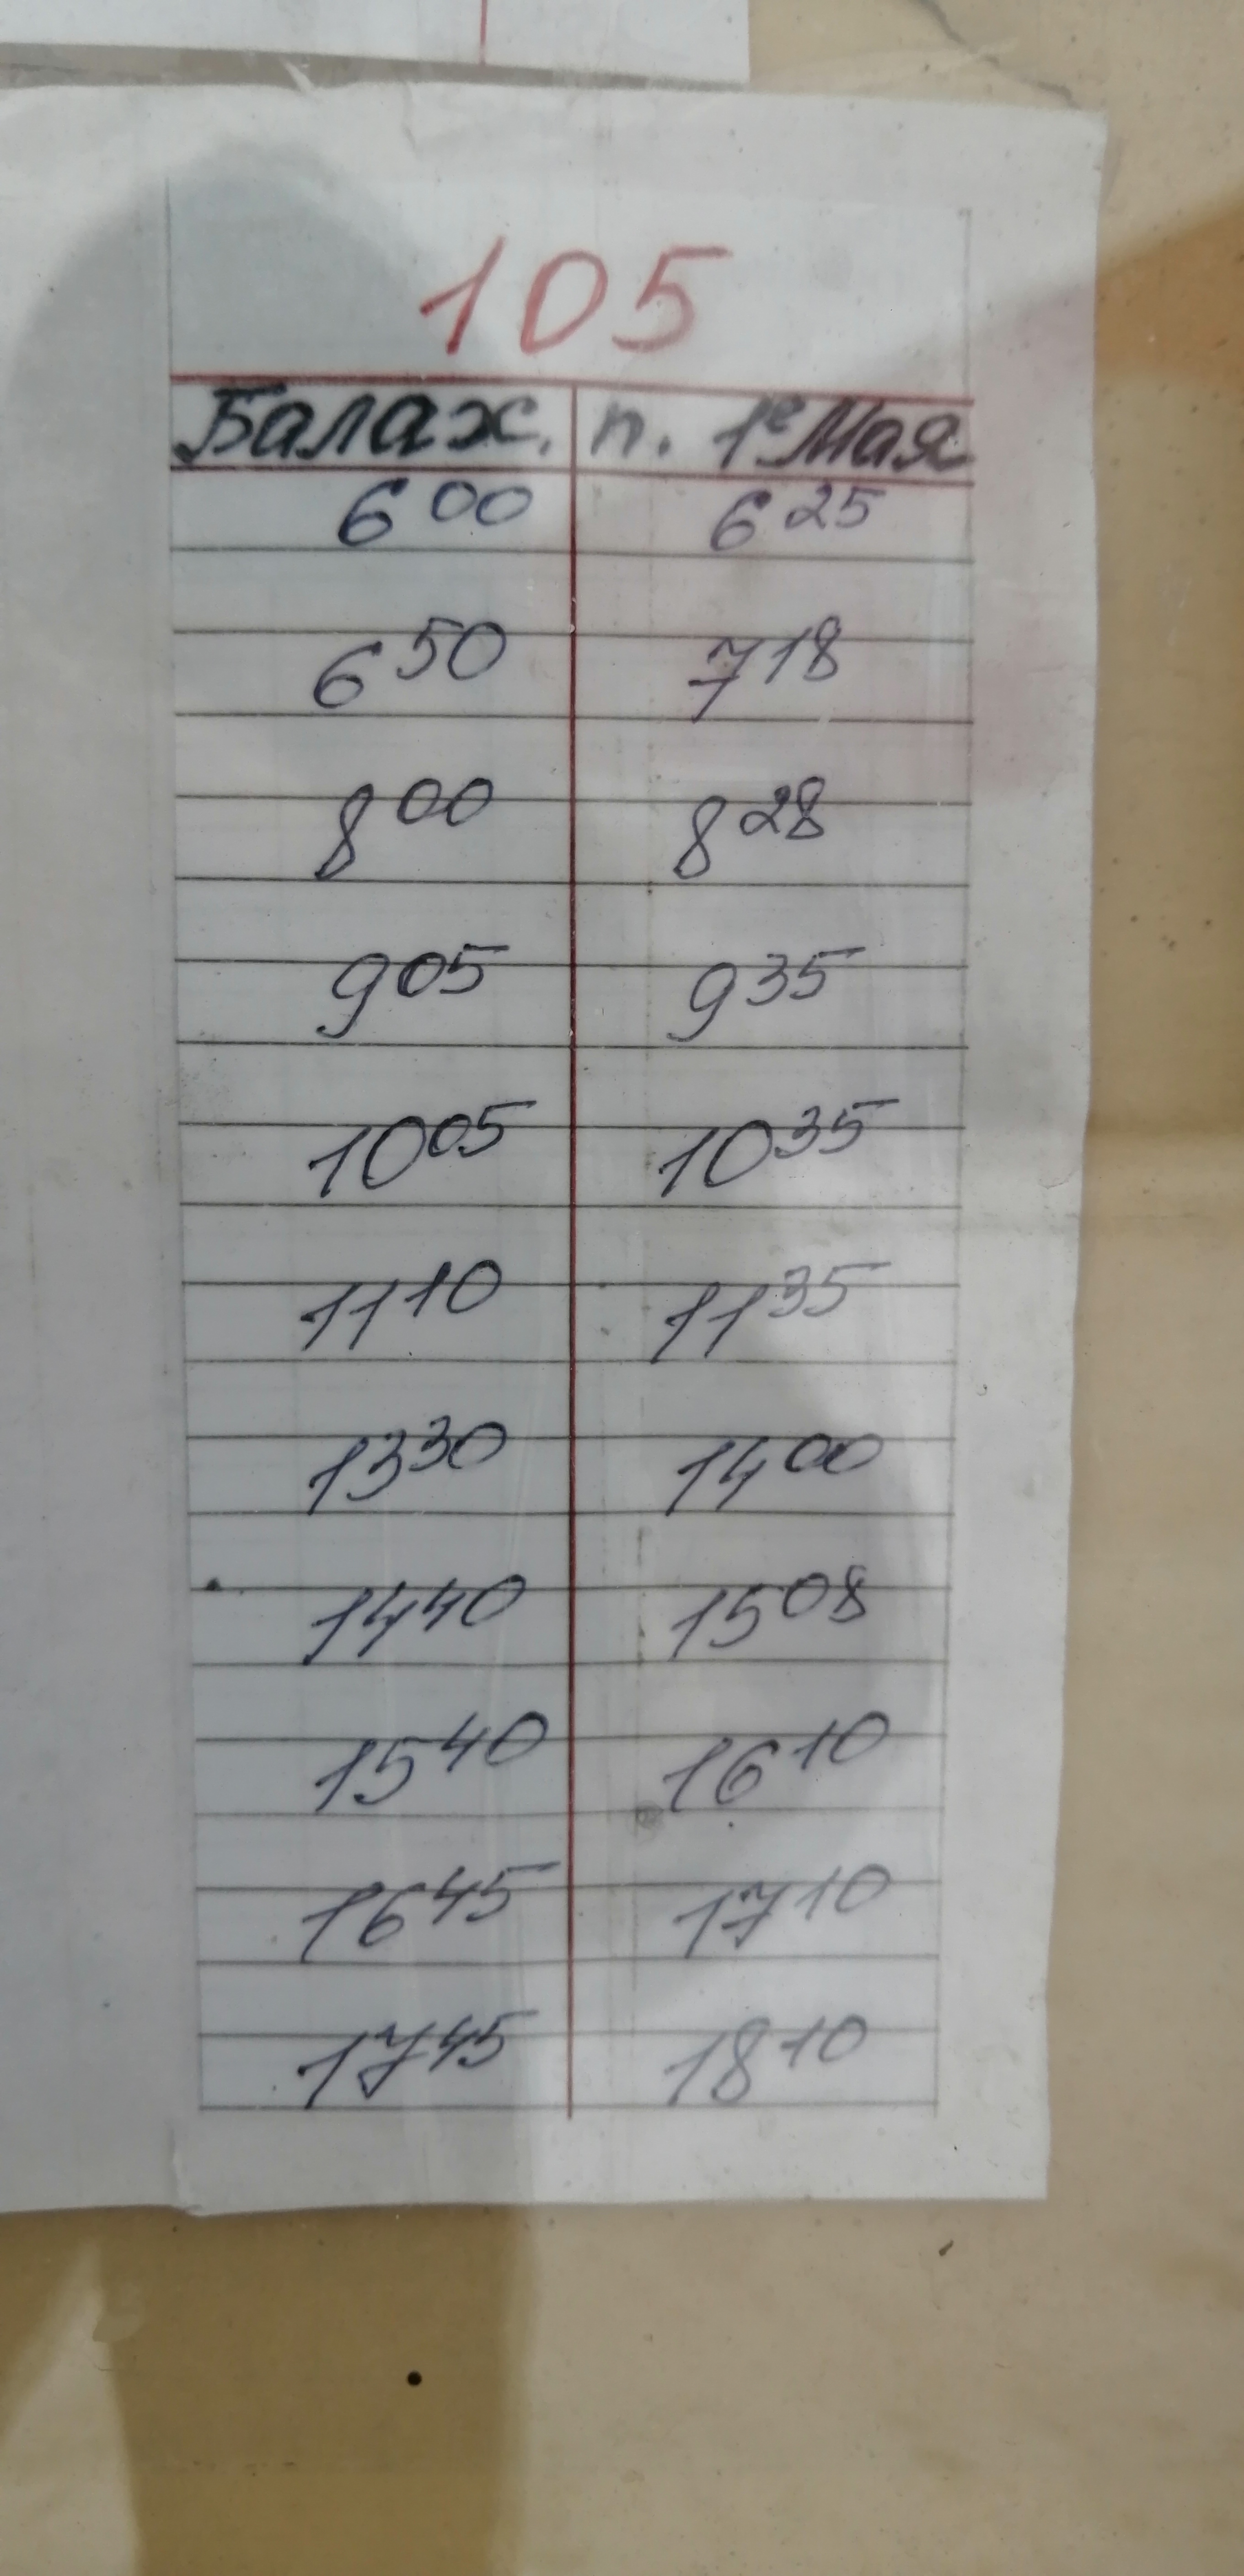 105
Балах. п. 1е Мая
6 00 6 25
6 50 7 18
8 00 8 28
9 05 9 35
10 05 10 35
11 10 11 35
13 30 14 00
14 40 15 08
15 40 16 10
16 45 17 10
17 45 18 10